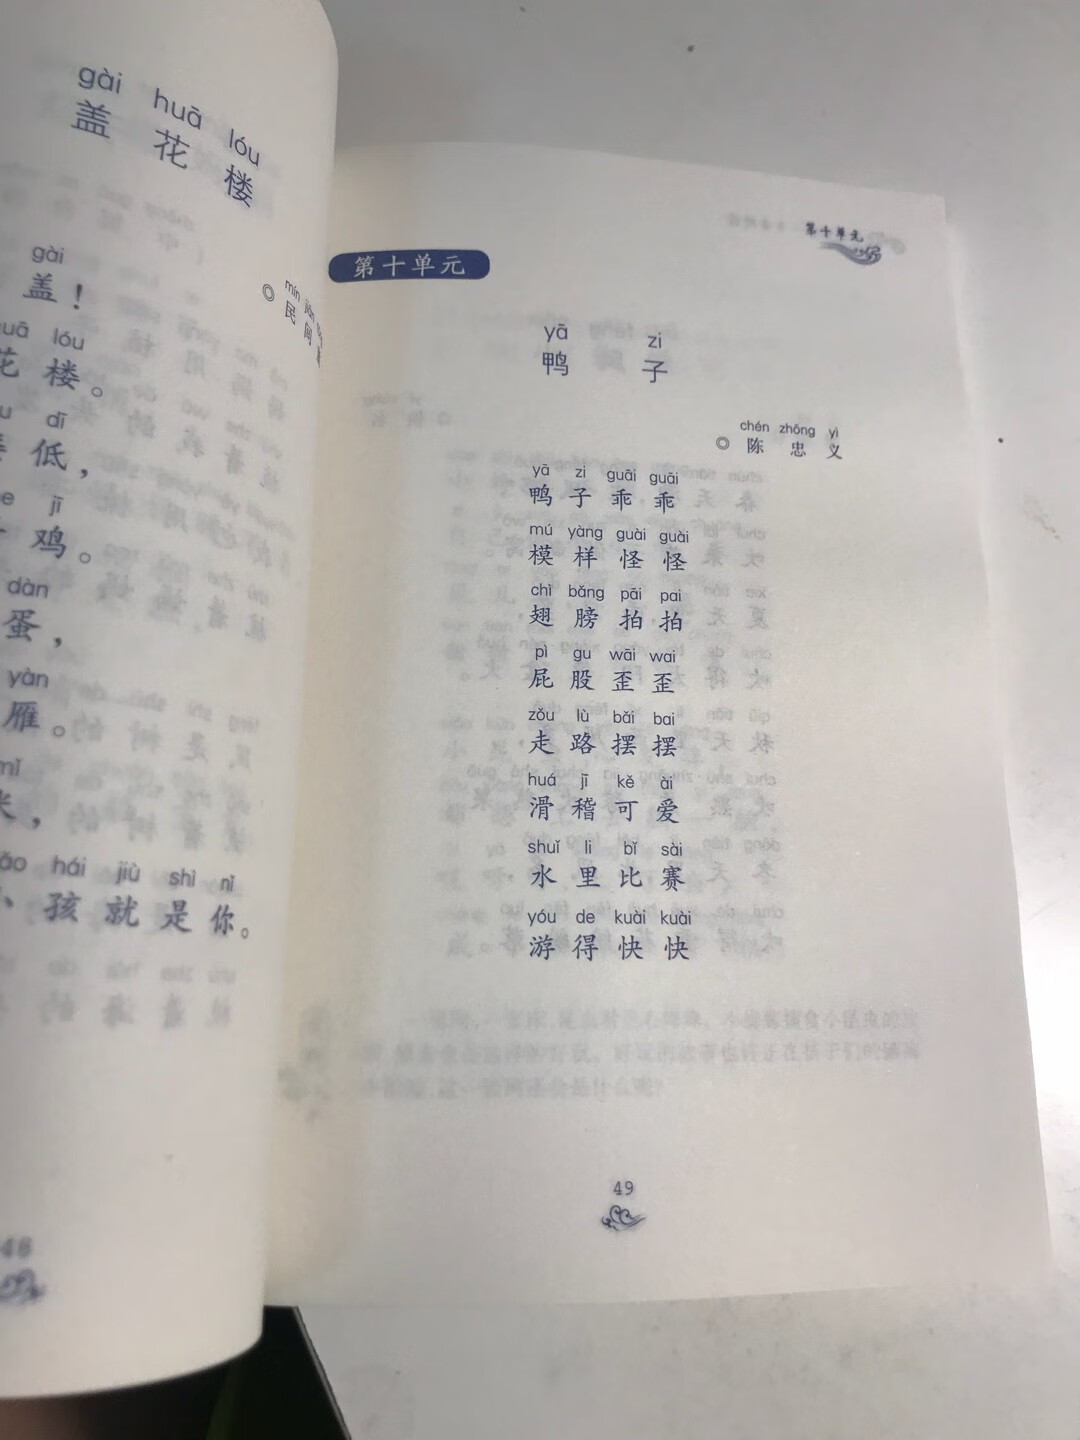 gài huā lóu
盖花楼
gài
盖！
lóu
花楼。
dī
低，
jī
鸡。
dàn
蛋，
yàn
雁。
mǐ
米，
hái jiù shì nǐ
孩就是你。
48
第十单元
第十单元
yā zi
鸭子
chén zhōng yì
◎陈忠义
yā zi guāi guāi
鸭子乖乖
mú yàng guài guài
模样怪怪
chì bǎng pāi pai
翅膀拍拍
pì gu wāi wai
屁股歪歪
zǒu lù bǎi bai
走路摆摆
huá jī kě ài
滑稽可爱
shuǐ li bǐ sài
水里比赛
yóu de kuài kuài
游得快快
49